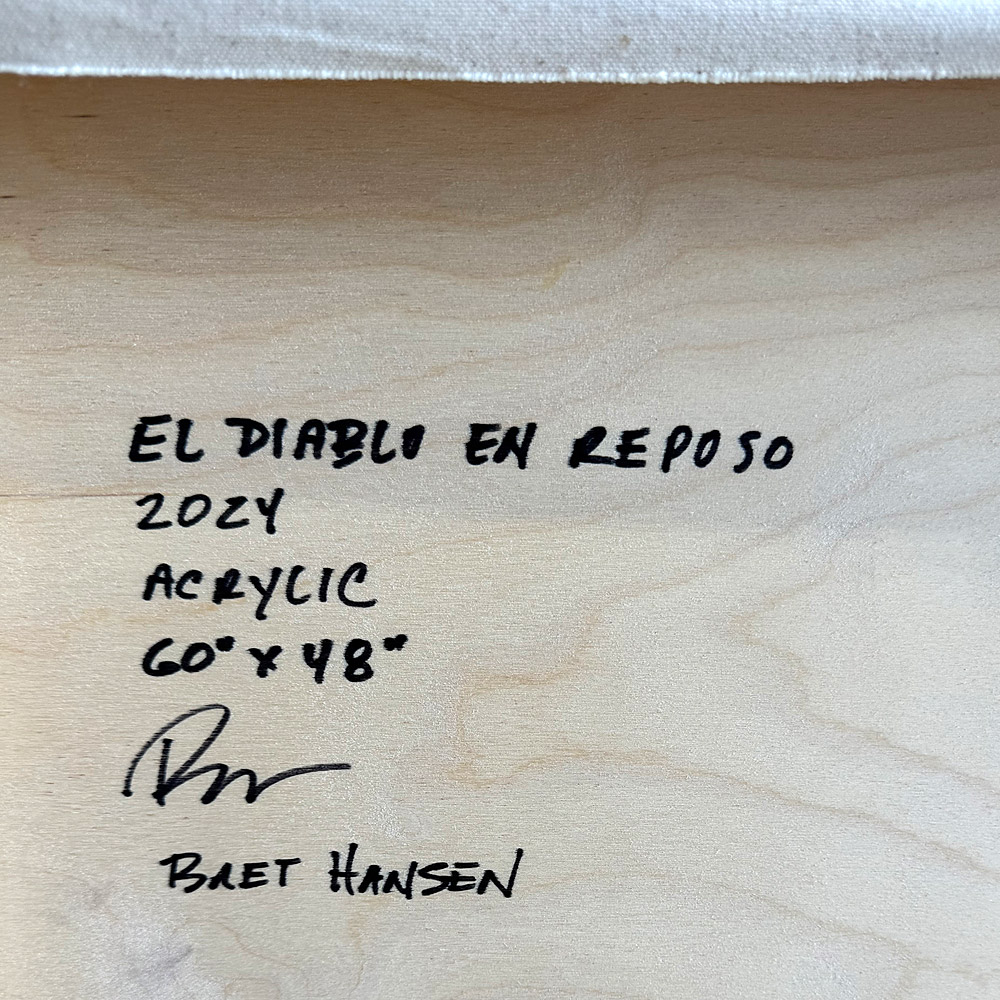 EL DIABLO EN REPOSO
2024
ACRYLIC
60" x 48"
BRET HANSEN